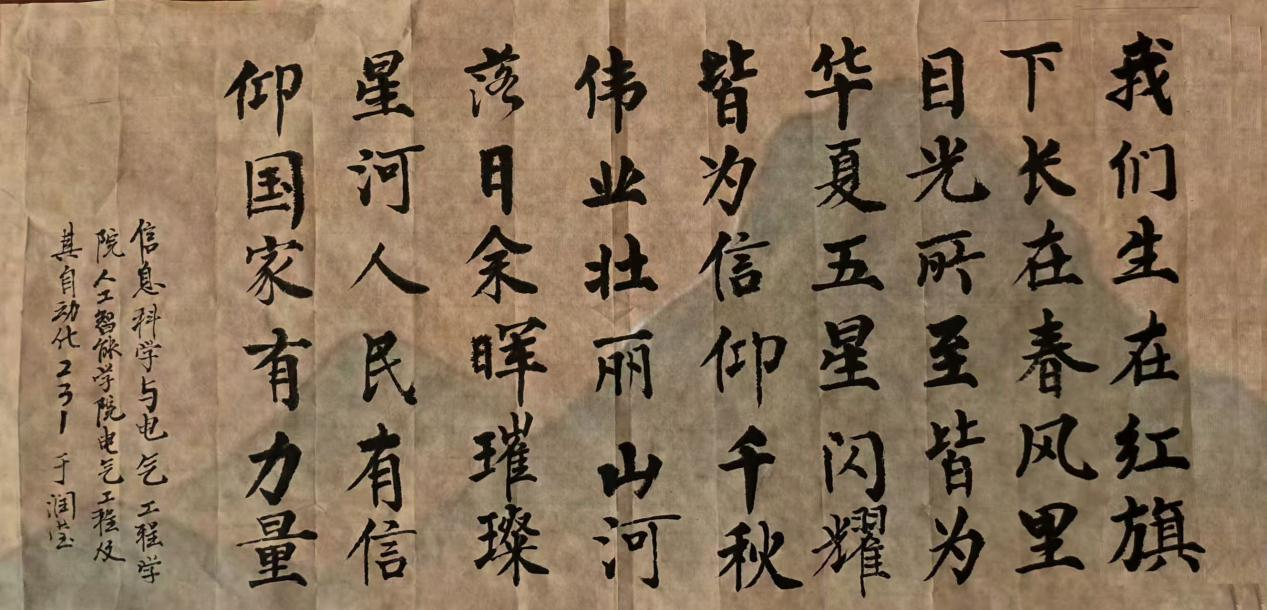 我们生在红旗
下长在春风里
目光所至皆为
华夏五星闪耀
皆为信仰千秋
伟业壮丽山河
落日余晖璀璨
星河人民有信
仰国家有力量
信息科学与电气工程学
院人工智能学院电气工程及
其自动化231于润莹